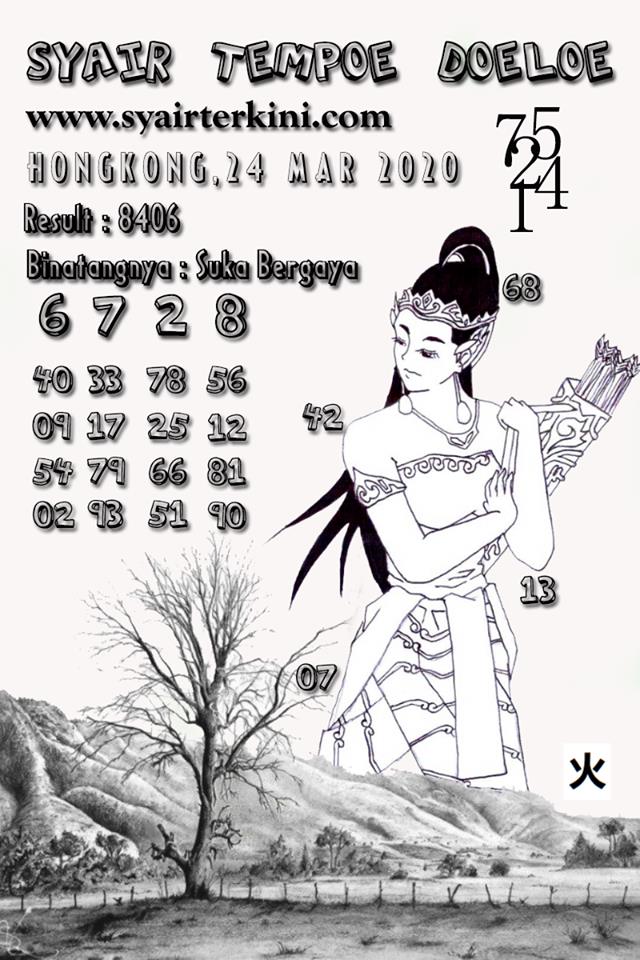 SYAIR TEMPOE DOELOE
www.syairterkini.com
HONGKONG,24 MAR 2020
Result : 8406
Binatangnya : Suka Bergaya
75
24
1
6 7 2 8
68
40 33 78 56
09 17 25 12
42
54 79 66 81
02 93 51 90
13
07
火